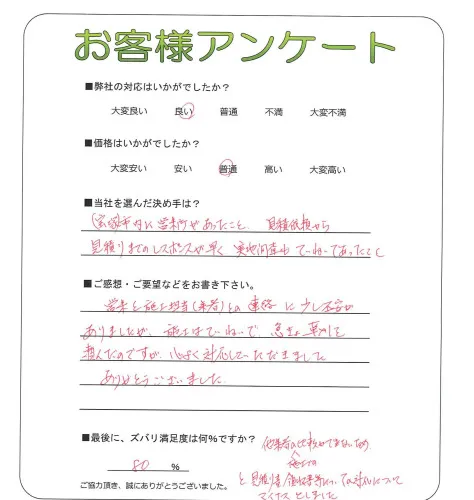 お客様アンケート
■弊社の対応はいかがでしたか？
大変良い 良い 普通 不満 大変不満
■価格はいかがでしたか？
大変安い 安い 普通 高い 大変高い
■当社を選んだ決め手は？
宝塚市内に営業所があったこと、見積依頼から
見積りまでのレスポンスが早く 実地調査も ていねいであったこと
■ご感想・ご要望などをお書き下さい。
営業と施工担当(業者)との連絡に少し不安が
ありましたが、施工はていねいで、急きょ 草刈を
頼んだのですが、心よく対応していただきました
ありがとうございました。
■最後に、ズバリ満足度は何%ですか？
80 %
他業者の比較ができないため
と、見積り書 領収書等 についての対応について
マイナスとしました
ご協力頂き、誠にありがとうございました。